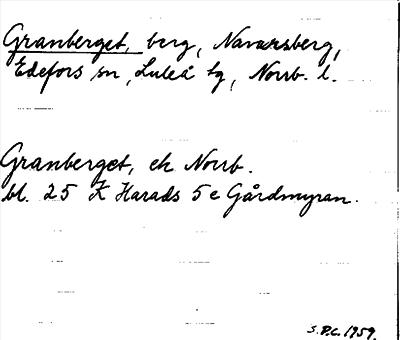 Granberget, berg, Navarsberg,
Edefors sn, Luleå tg, Norrb. l.
Granberget, ek Norrb.
bl. 25 K Harads 5 e Gårdmyran.
S.P.C. 1959.